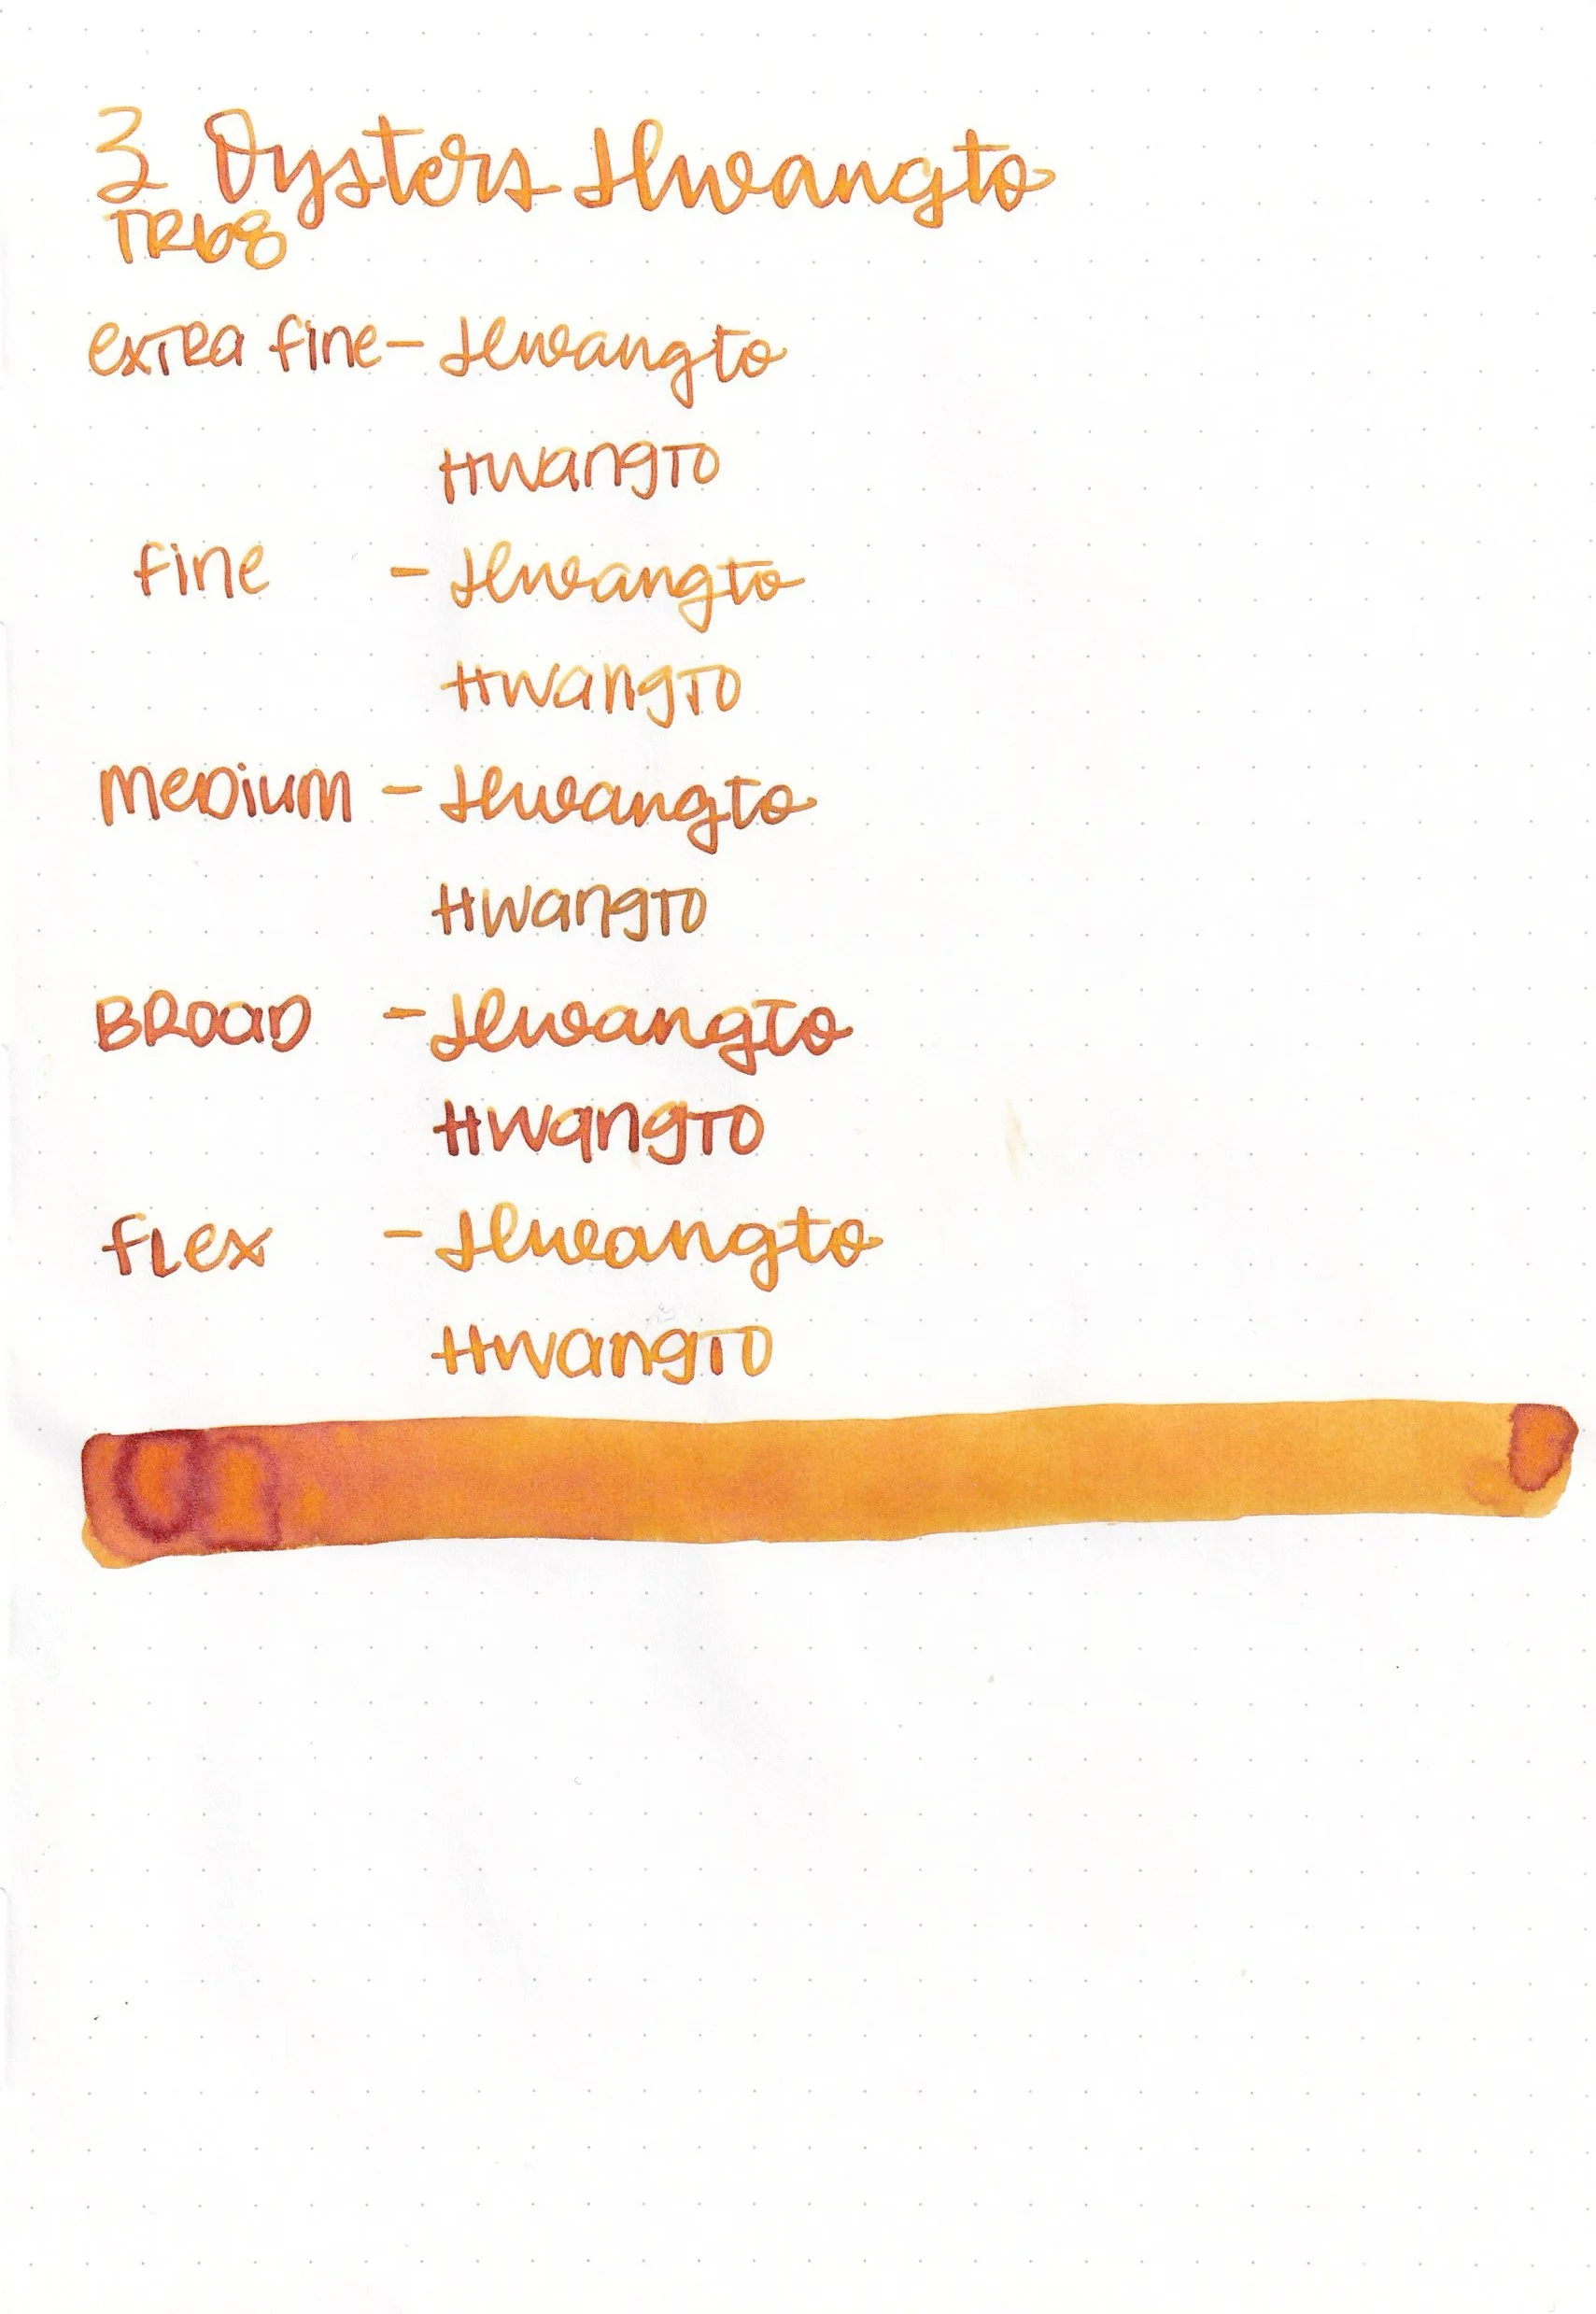 3 Oysters Hwangto
TR68
extra fine - Hwangto
Hwangto
fine - Hwangto
Hwangto
medium - Hwangto
Hwangto
Broad - Hwangto
Hwangto
flex - Hwangto
Hwangto